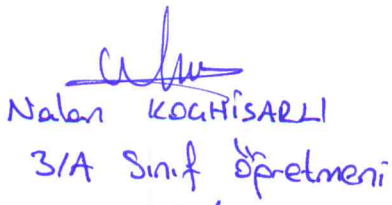 Nalan KOÇHİSARLI
3/A Sınıf Öğretmeni